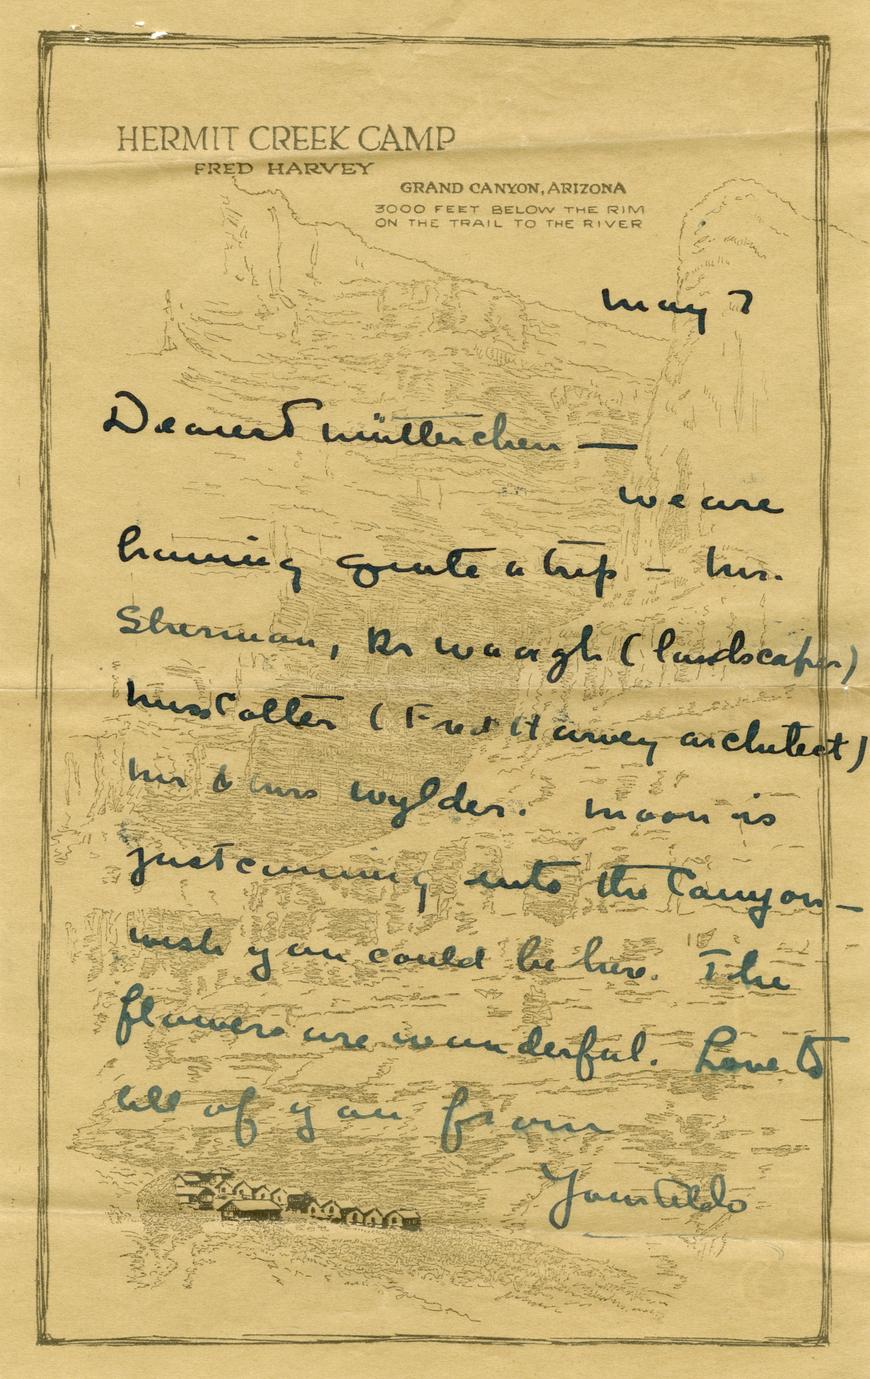 HERMIT CREEK CAMP
FRED HARVEY
GRAND CANYON, ARIZONA
3000 FEET BELOW THE RIM
ON THE TRAIL TO THE RIVER
May 7
Dearest Mütterchen —
We are
having quite a trip — Mr.
Sherman, Mr Waugh (landscaper)
Miss Colter (Fred Harvey architect)
Mr & Mrs Wylder. Moon is
just coming into the Canyon —
wish you could be here. The
flowers are wonderful. Love to
all of you from
Your